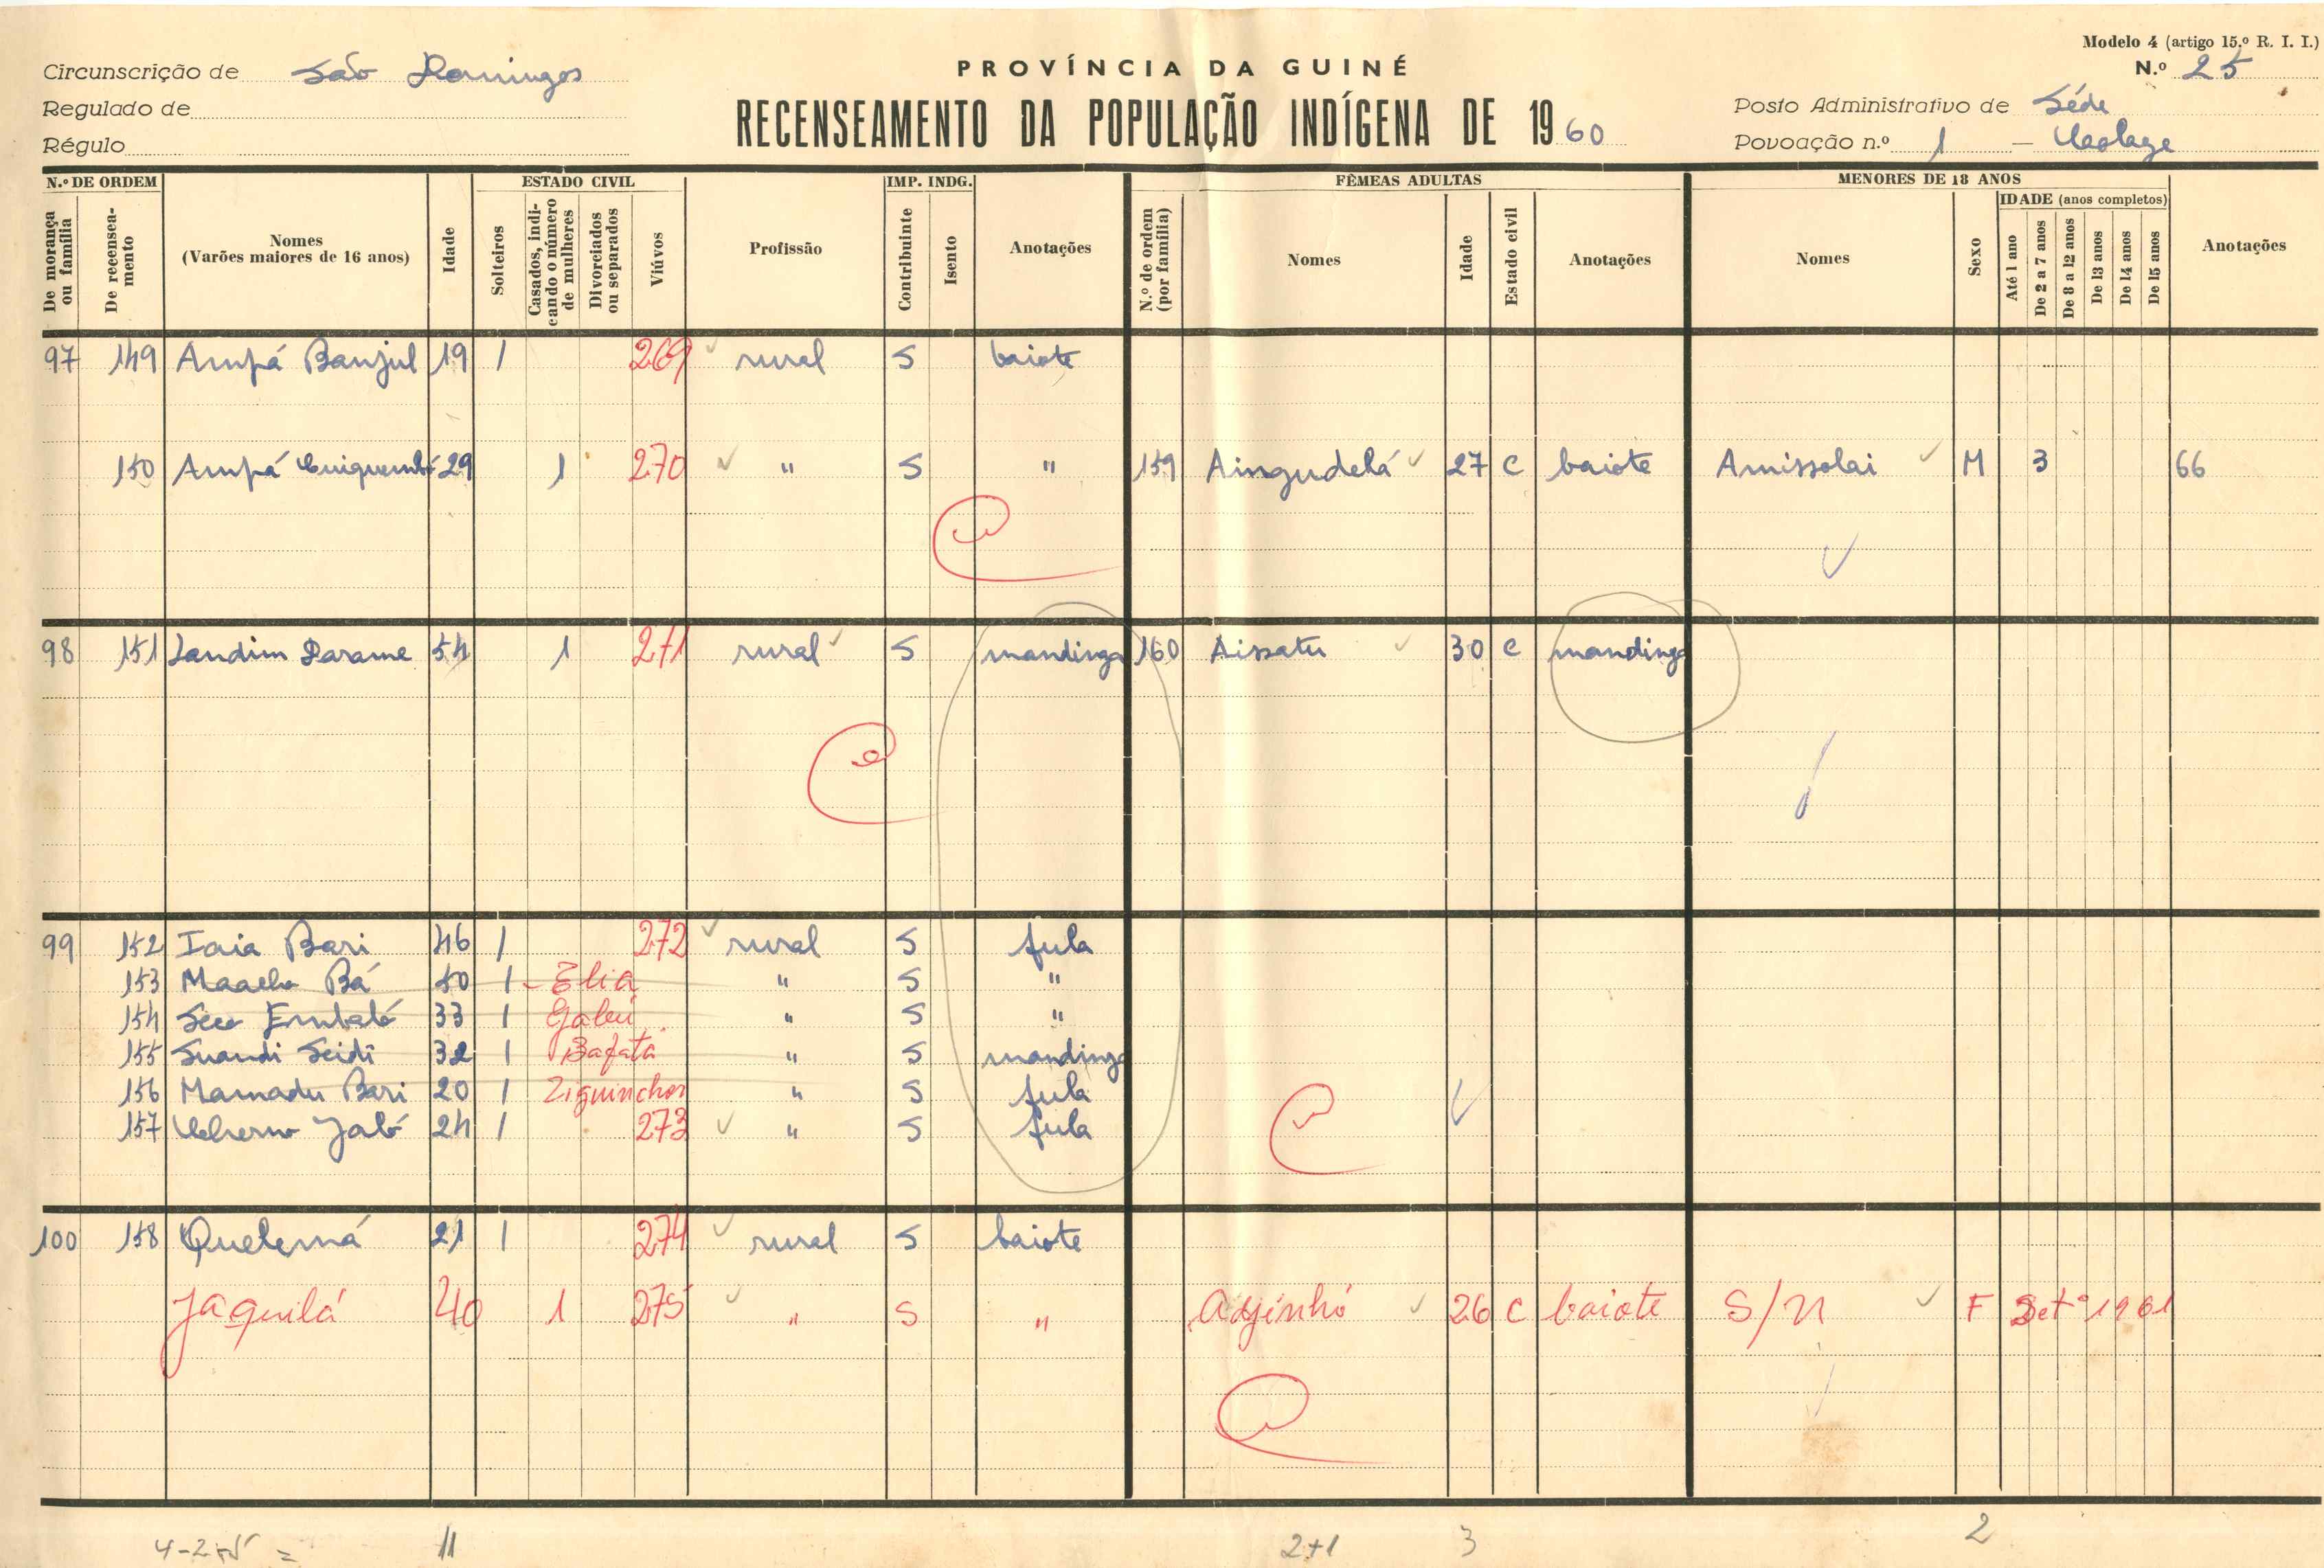 Modelo 4 (artigo 15.º R. I. I.)
N.º 25
Circunscrição de São Domingos
Regulado de
Régulo
PROVÍNCIA DA GUINÉ
RECENSEAMENTO DA POPULAÇÃO INDÍGENA DE 1960
Posto Administrativo de Séde
Povoação n.º 1 —
N.º DE ORDEM
De morança ou família
De recenseamento
Nomes
(Varões maiores de 16 anos)
Idade
ESTADO CIVIL
Solteiros
Casados, indicando o número de mulheres
Divorciados ou separados
Viúvos
Profissão
IMP. INDG.
Contribuinte
Isento
Anotações
FÊMEAS ADULTAS
N.º de ordem (por família)
Nomes
Idade
Estado civil
Anotações
MENORES DE 18 ANOS
Nomes
Sexo
IDADE (anos completos)
Até 1 ano
De 2 a 7 anos
De 8 a 12 anos
De 13 anos
De 14 anos
De 15 anos
Anotações
97 149 Ampá Banjul 19 1 269 rural S baiote
150 Ampá 29 1 270 " S " 159 Aingudelá 27 C baiote Amissolai M 3 66
98 151 Landim Darame 54 1 271 rural S mandinga 160 Aissatu 30 C mandinga
99 152 Iaia Bari 46 1 272 rural S fula
153 Bá 1 Elia " S "
154 Embaló 33 1 Gabú " S "
155 Suandi Seidi 32 1 Bafatá " S mandinga
156 Mamadu Bari 20 1 Ziguinchor " S fula
157 Jaló 24 1 273 " S fula
100 158 Quelemá 21 1 274 rural S baiote
Jaquilá 40 1 275 " S " Adjinhó 26 C baiote S/N F Setº 1961
4-2+5 = 11 2+1 3 2